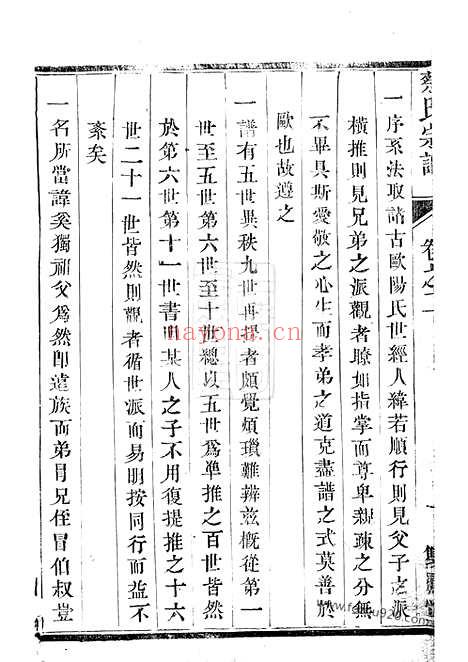 蔡氏宗譜
卷之二
一序系法取諸古歐陽氏世經人緯若順行則見父子之派
橫推則見兄弟之派觀者瞭如指掌而尊卑親疎之分無
不畢具斯愛敬之心生而孝弟之道克盡譜之式莫善於
歐也故遵之
一譜有五世異秩九世再提者頗覺煩瑣難辨茲概從第一
世至五世第六世至十世總以五世爲準推之百世皆然
於第六世第十一世書明某人之子不用復提推之十六
世二十一世皆然則觀者循世派而易明按同行而益不
紊矣
一名所當諱奚獨祖父爲然卽遠族而弟冐兄侄冒伯叔豈
nayona.cn